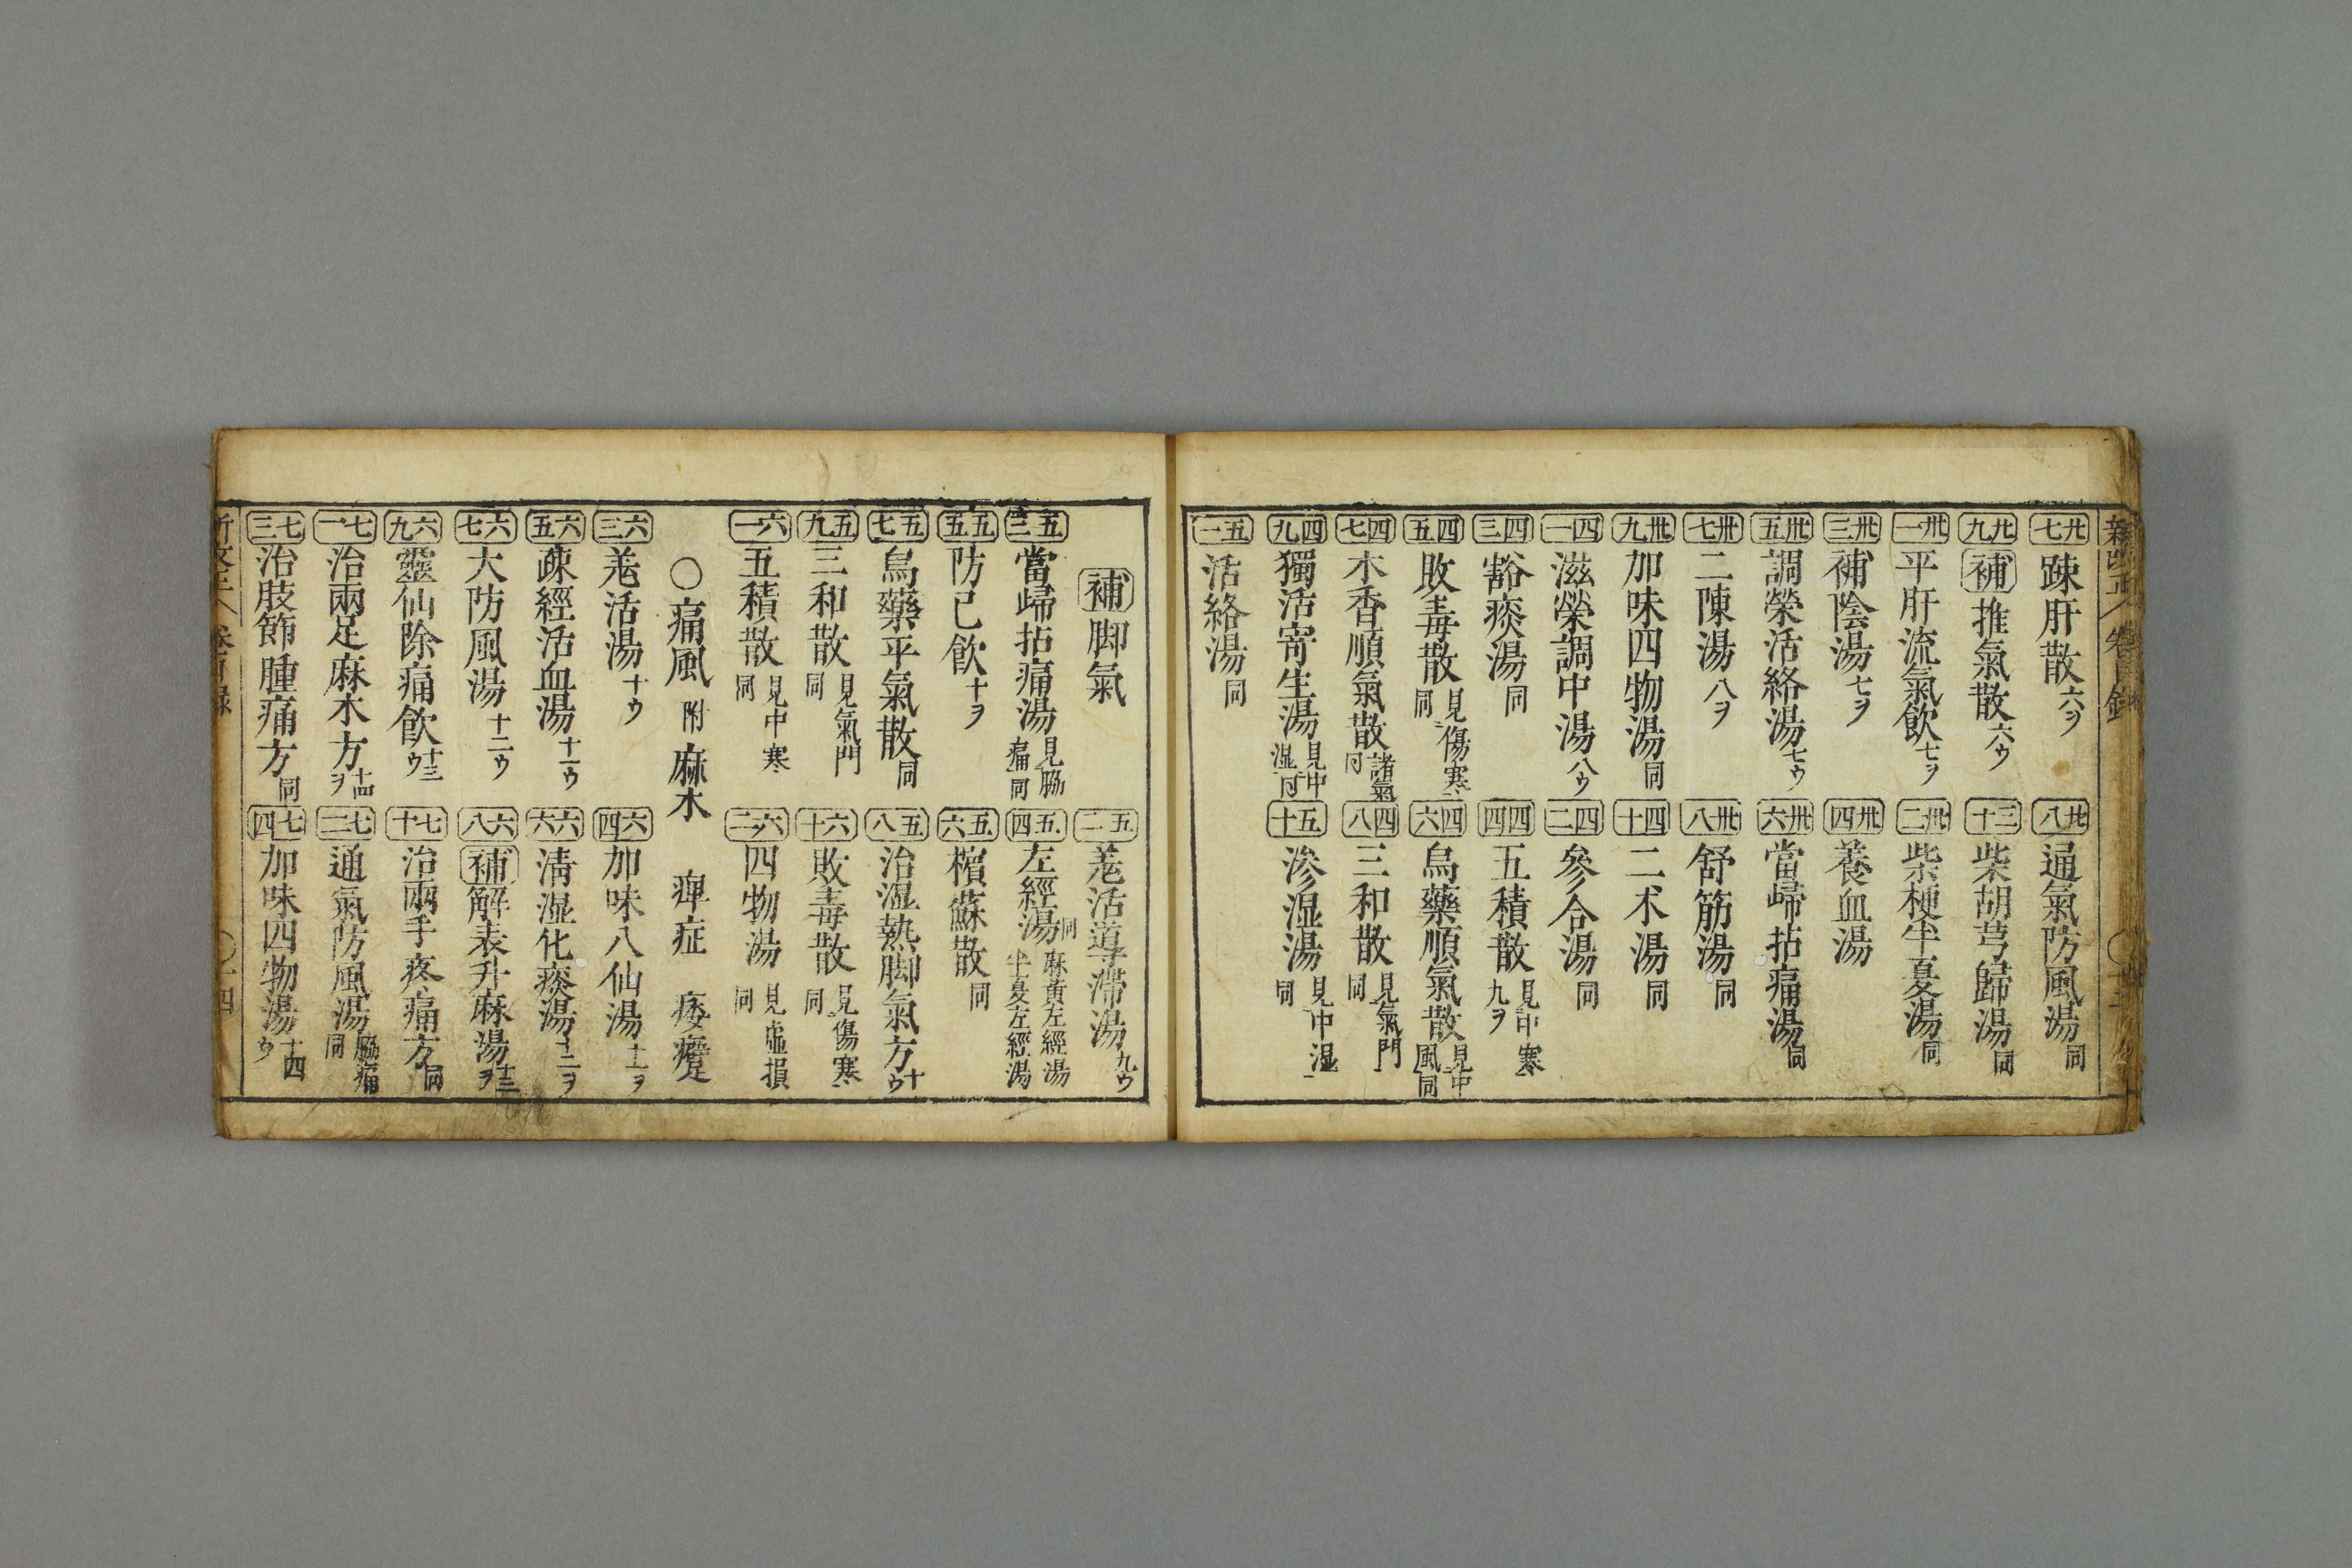 廿七 疎肝散 六ヲ 廿八 通氣防風湯 同
廿九 補 推氣散 六ウ 三十 柴胡芎歸湯 同
卅一 平肝流氣飲 七ヲ 卅二 柴梗半夏湯 同
卅三 補陰湯 七ヲ 卅四 養血湯
卅五 調榮活絡湯 七ウ 卅六 當歸拈痛湯 同
卅七 二陳湯 八ヲ 卅八 舒筋湯 同
卅九 加味四物湯 同 四十 二朮湯 同
四一 滋榮調中湯 八ウ 四二 參合湯 同
四三 豁痰湯 同 四四 五積散 見中寒 九ヲ
四五 敗毒散 見傷寒 同 四六 烏藥順氣散 見中風 同
四七 木香順氣散 諸氣 同 四八 三和散 見氣門 同
四九 獨活寄生湯 見中湿 同 五十 滲湿湯 見中湿 同
五一 活絡湯 同
補 脚氣 五二 羗活導滯湯 九ウ
五三 當歸拈痛湯 見脇痛 同 五四 左經湯 同 麻黄左經湯 半夏左經湯
五五 防已飲 十ヲ 五六 檳蘇散 同
五七 烏藥平氣散 同 五八 治湿熱脚氣方 十ウ
五九 三和散 見氣門 同 六十 敗毒散 見傷寒 同
六一 五積散 見中寒 同 六二 四物湯 見虚損 同
○痛風 附 麻木 痺症 痿躄
六三 羗活湯 十ウ 六四 加味八仙湯 十一ヲ
六五 疎經活血湯 十一ウ 六六 清湿化痰湯 十二ヲ
六七 大防風湯 十二ウ 六八 補 解表升麻湯 十三ヲ
六九 靈仙除痛飲 十三ウ 七十 治兩手疼痛方 同
七一 治兩足麻木方 十四ヲ 七二 通氣防風湯 脇痛 同
七三 治肢節腫痛方 同 七四 加味四物湯 十四ウ